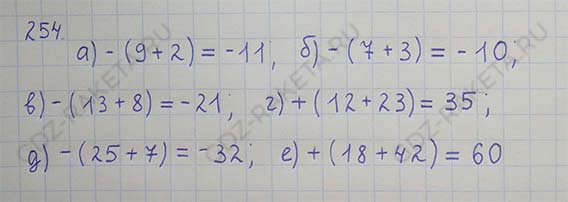 254.
а) -(9+2) = -11; б) -(7+3) = -10;
в) -(13+8) = -21; г) +(12+23) = 35;
д) -(25+7) = -32; е) +(18+42) = 60
GDZ-RAKETA.RU